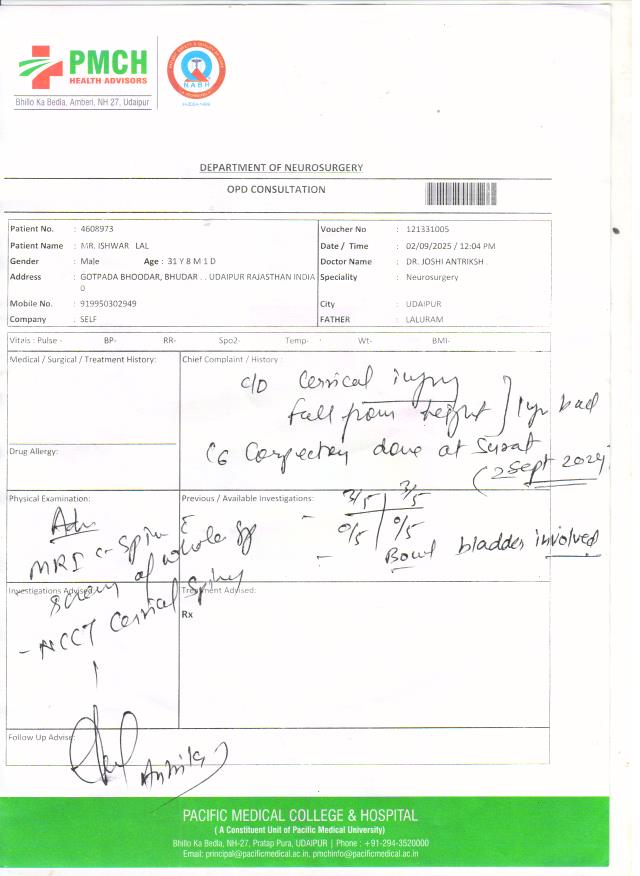 PMCH
HEALTH ADVISORS
Bhillo Ka Bedia, Amberi, NH 27, Udaipur
NABH
DEPARTMENT OF NEUROSURGERY
OPD CONSULTATION
Patient No. : 4608973 Voucher No : 121331005
Patient Name : MR. ISHWAR LAL Date / Time : 02/09/2025 / 12:04 PM
Gender : Male Age : 31 Y 8 M 1 D Doctor Name : DR. JOSHI ANTRIKSH .
Address : GOTPADA BHOODAR, BHUDAR . . UDAIPUR RAJASTHAN INDIA Speciality : Neurosurgery
0
Mobile No. : 919950302949 City : UDAIPUR
Company : SELF FATHER : LALURAM
Vitals : Pulse - BP- RR- Spo2- Temp- Wt- BMI-
Medical / Surgical / Treatment History: Chief Complaint / History :
c/o Cervical injury
fall from height } 1 yr back
Drug Allergy:
C6 Corpectomy done at Surat
(2 Sept 2024)
Physical Examination: Previous / Available Investigations:
3/5 3/5
0/5 0/5
Bowel bladder involved
Adv
MRI c-spine c
screen of whole sp
Investigations Advised: Treatment Advised:
- NCCT Cervical Spine
Rx
Follow Up Advise:
Antriksh
PACIFIC MEDICAL COLLEGE & HOSPITAL
( A Constituent Unit of Pacific Medical University)
Bhillo Ka Bedla, NH-27, Pratap Pura, UDAIPUR | Phone : +91-294-3520000
Email: principal@pacificmedical.ac.in, pmchinfo@pacificmedical.ac.in